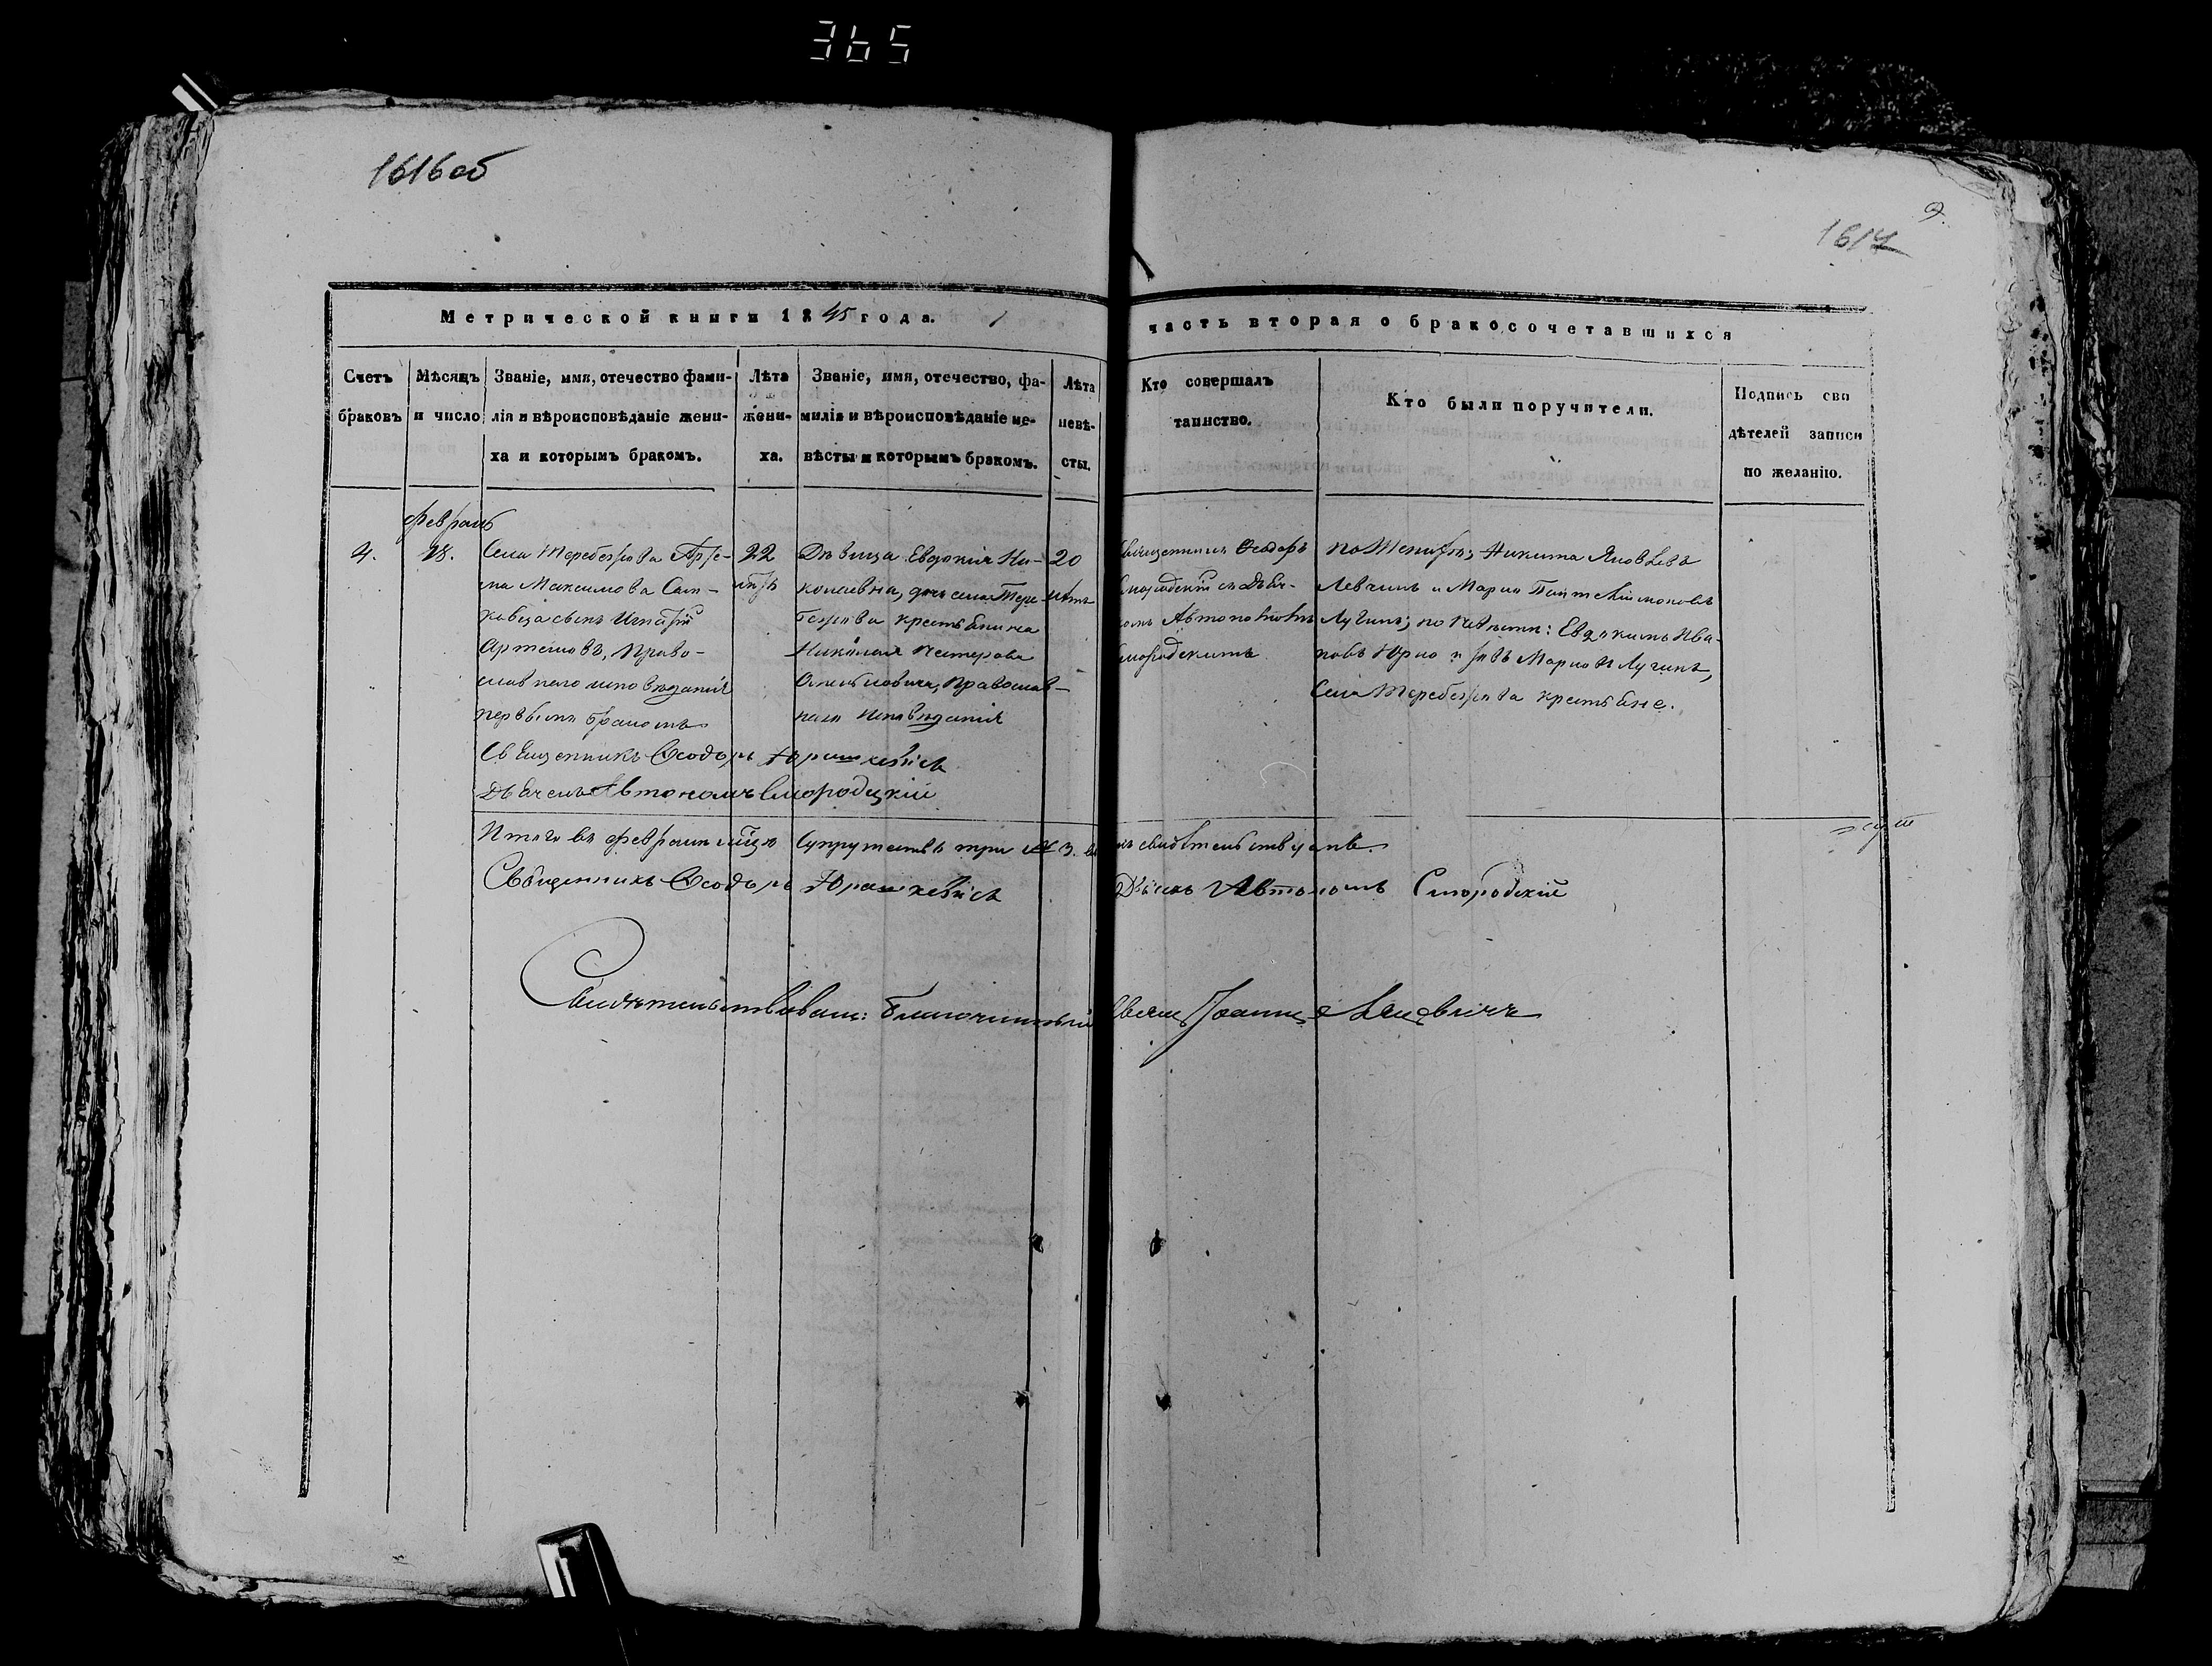 365
1616об
9.
1617
Метрической книги 1845 года.
часть вторая о бракосочетавшихся
Счетъ браковъ
Мѣсяцъ и число
Званіе, имя, отечество фами-
лія и вѣроисповѣданіе жени-
ха и которымъ бракомъ.
Лѣта жени-
ха.
Званіе, имя, отечество, фа-
милія и вѣроисповѣданіе не-
вѣсты и которымъ бракомъ.
Лѣта невѣ-
сты.
Кто совершалъ
таинство.
Кто были поручители.
Подпись сви
дѣтелей записи
по желанію.
февраль
4.
18.
Села Теребежова Арте-
ма Максимова Сан-
ковца сынъ Игнатій
Артемовъ, Право-
славнаго исповѣданія
первымъ бракомъ
22
лѣтъ
Дѣвица Евдокія Ни-
колаевна, дочь села Тере-
бежова крестьянина
Николая Нестерова
Православ-
наго Исповѣданія
20
лѣтъ
Священникъ Ѳеодоръ
съ Дьяч-
комъ Автономомъ
Смородскимъ
по Женихѣ; Никита Яковлевъ
Левчинъ и Марко Пантелѣимоновъ
Лугинъ; по невѣсти: Евдокимъ Ива-
новъ Марковъ Лугинъ,
Села Теребежова крестьяне.
Священникъ Ѳеодоръ Юрашкевичъ
Дьячекъ Автономъ Смородскій
Итого въ февралѣ мѣсяцѣ Супружествъ три 3. въ чемъ свидѣтельствуемъ.
Священникъ Ѳеодоръ Юрашкевичъ Дьячекъ Автономъ Смородскій
Свидѣтельствовалъ: Благочинный Свящ. Іоаннъ